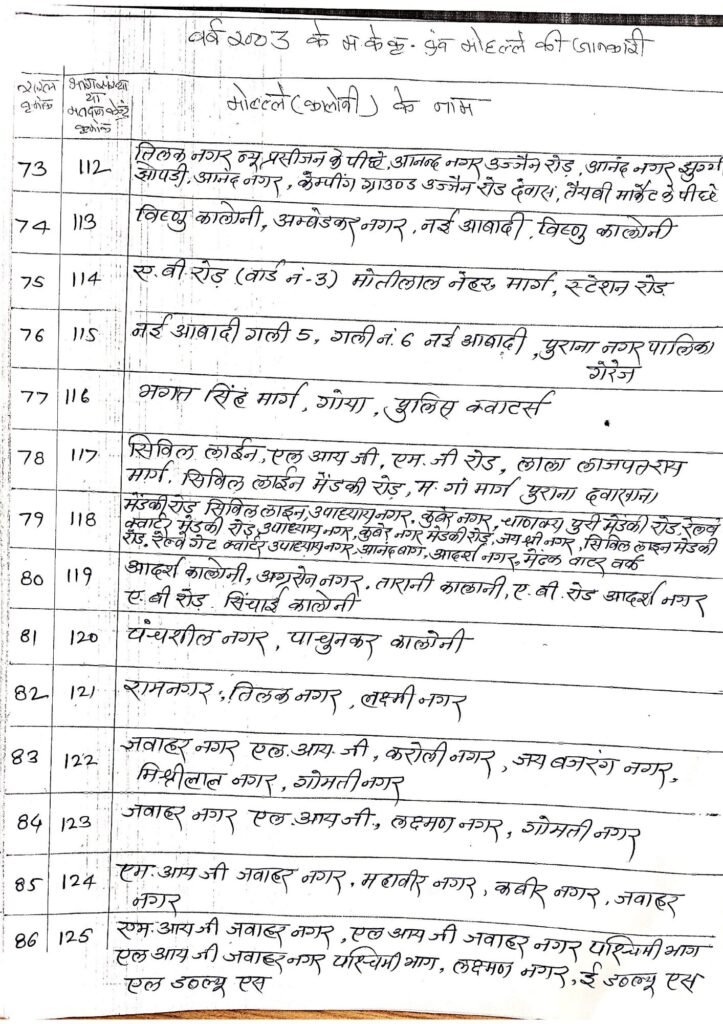 वर्ष २००3 के म.के.कृ. एंव मोहल्ले की जानकारी
सरल क्रमांक
भाग संख्या या मतदान केन्द्र क्रमांक
मोहल्ले (कालोनी) के नाम
73 112 तिलक नगर न्यू प्रसीजन के पीछे, आनन्द नगर उज्जैन रोड़, आनंद नगर झुग्गी
झोपडी, आनंद नगर, केम्पींग ग्राउण्ड उज्जैन रोड देवास, तैयबी मार्केट के पीछे
74 113 विष्णु कालोनी, अम्बेडकर नगर, नई आबादी, विष्णु कालोनी
75 114 ए.बी. रोड़ (वार्ड नं-3) मोतीलाल नेहरू मार्ग, स्टेशन रोड
76 115 नई आबादी गली 5, गली नं. 6 नई आबादी, पुराना नगर पालिका
गेरेज
77 116 भगत सिंह मार्ग, गोया, पुलिस क्वाटर्स
78 117 सिविल लाईन, एल आय जी, एम.जी रोड़, लाला लाजपतराय
मार्ग, सिविल लाईन मेंडकी रोड़, म.गां मार्ग पुराना दवाखाना
79 118 मेंडकी रोड़ सिविल लाइन, उपाध्याय नगर, कुबेर नगर, चाणक्य पुरी मेंडकी रोड़ रेल्वे
क्वार्टर मेंडकी रोड़, उपाध्याय नगर, कुबेर नगर मेंडकी रोड़, जय श्री नगर, सिविल लाइन मेंडकी
रोड़, रेल्वे गेट क्वार्टर, उपाध्याय नगर, आनंद बाग, आदर्श नगर, मेंढक वाटर वर्क
80 119 आदर्श कालोनी, अग्रसेन नगर, तारानी कालानी, ए.बी. रोड आदर्श नगर
ए.बी रोड़, सिंचाई कालोनी
81 120 पंचशील नगर, पाचुनकर कालोनी
82 121 रामनगर, तिलक नगर, लक्ष्मी नगर
83 122 जवाहर नगर एल.आय.जी, करोली नगर, जय बजरंग नगर,
मिश्रीलाल नगर, गोमती नगर
84 123 जवाहर नगर एल.आय जी, लक्ष्मण नगर, गोमती नगर
85 124 एम.आय जी जवाहर नगर, महावीर नगर, कबीर नगर, जवाहर
नगर
86 125 एम.आय जी जवाहर नगर, एल आय जी जवाहर नगर पश्चिमी भाग
एल आय जी जवाहर नगर पश्चिमी भाग, लक्ष्मण नगर, ई डब्ल्यू एस
एल डब्ल्यू एस